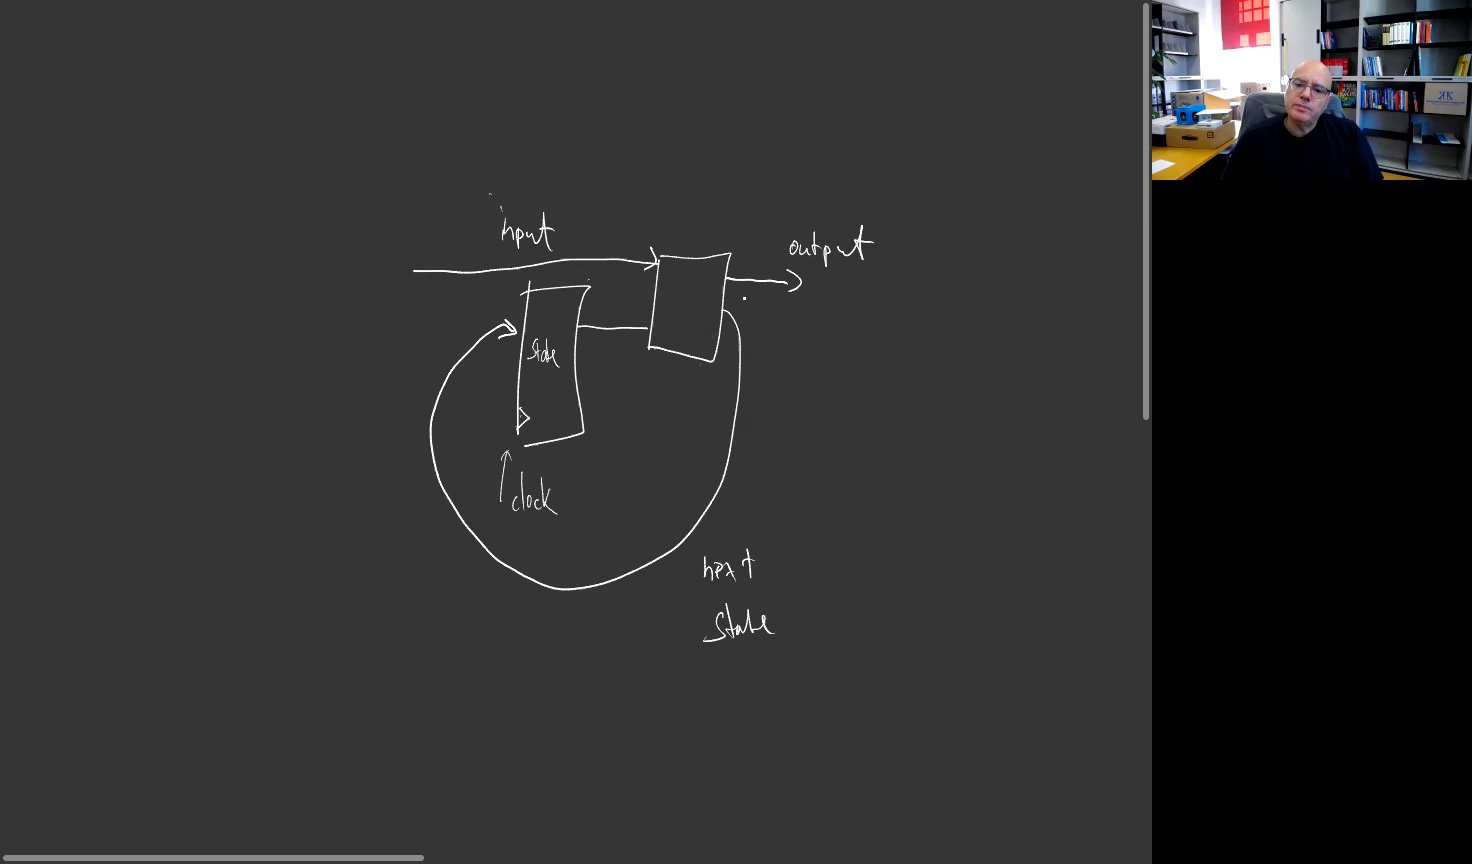 input
output
state
clock
next
state
KK